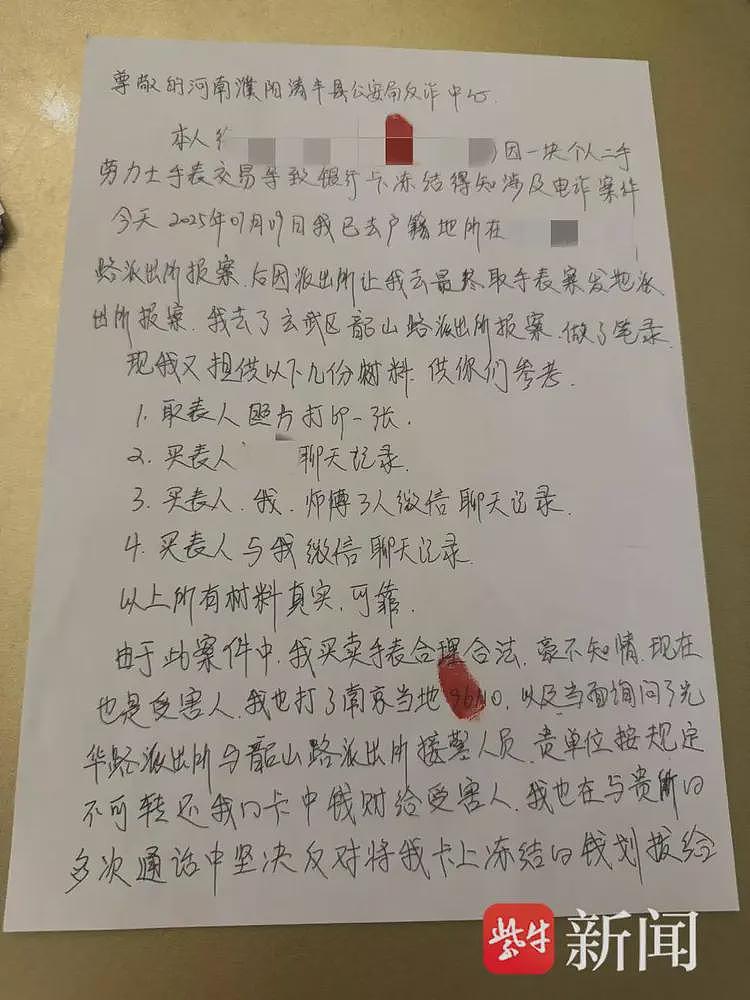 尊敬的河南濮阳清丰县公安局反诈中心.
本人 )因一块个人二手
劳力士手表交易导致银行卡冻结得知涉及电诈案件
今天2025年07月09日我已去户籍地所在
路派出所报案.后因派出所让我去最终取手表案发地派
出所报案.我去了玄武区韶山路派出所报案.做了笔录.
现我又提供以下几份材料.供你们参考.
1.取表人照片打印一张.
2.买表人 聊天记录.
3.买表人.我.师傅3人微信聊天记录.
4.买表人与我微信聊天记录.
以上所有材料真实.可靠.
由于此案件中.我买卖手表合理合法.豪不知情.现在
也是受害人.我也打了南京当地96110.以及当面询问了光
华路派出所与韶山路派出所接警人员.责单位按规定
不可转还我的卡中钱财给受害人.我也在与贵所的
多次通话中坚决反对将我卡上冻结的钱划拨给
紫牛新闻